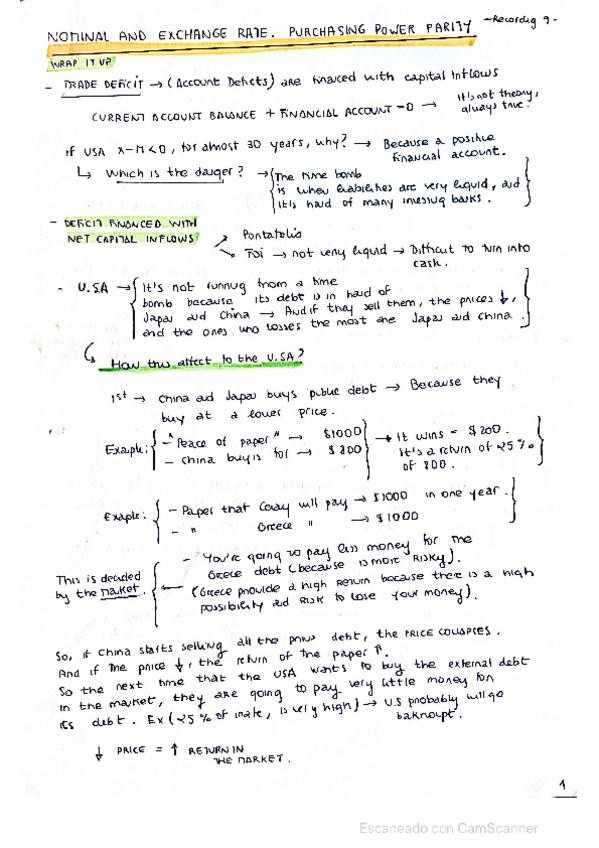 NOMINAL AND EXCHANGE RATE. PURCHASING POWER PARITY -Recording 9-
WRAP IT UP
- TRADE DEFICIT → (Account Deficts) are financed with capital Inflows
CURRENT ACCOUNT BALANCE + FINANCIAL ACCOUNT = 0 → It's not theory, always true.
If USA X-M<0, for almost 30 years, why? → Because a positive financial account.
↳ Which is the danger? → The time bomb
is when liabilities are very liquid, and
it is hand of many investing banks.
- DEFICIT FINANCED WITH
NET CAPITAL INFLOWS
Portafolio
FDI → not very liquid → Difficult to turn into
cash.
- U.SA → It's not running from a time
bomb because its debt is in hand of
Japan and China → And if they sell them, the prices ↓,
and the ones who losses the most are Japan and China.
How this affect to the U.SA?
1st → China and Japan buys public debt → Because they
buy at a lower price.
Example: - "Peace of paper" → $1000
- China buy is for → $ 800
→ It wins = $200.
It's a return of 25%
of 800.
Example: - Paper that will pay → $1000 in one year.
- " Grece " → $1000
This is decided
by the market.
- You're going to pay less money for the
Grece debt (because is more RISKY).
(Grece provide a high return because there is a high
possibility and RISK to lose your money).
So, if China starts selling all the debt, the PRICE COLAPSES.
And if the price ↓, the return of the paper ↑.
So the next time that the USA wants to buy the external debt
in the market, they are going to pay very little money for
its debt. Ex (25% of, is very high) → U.S probably will go
bakrupt.
↓ PRICE = ↑ RETURN IN
THE MARKET.
1
Escaneado con CamScanner